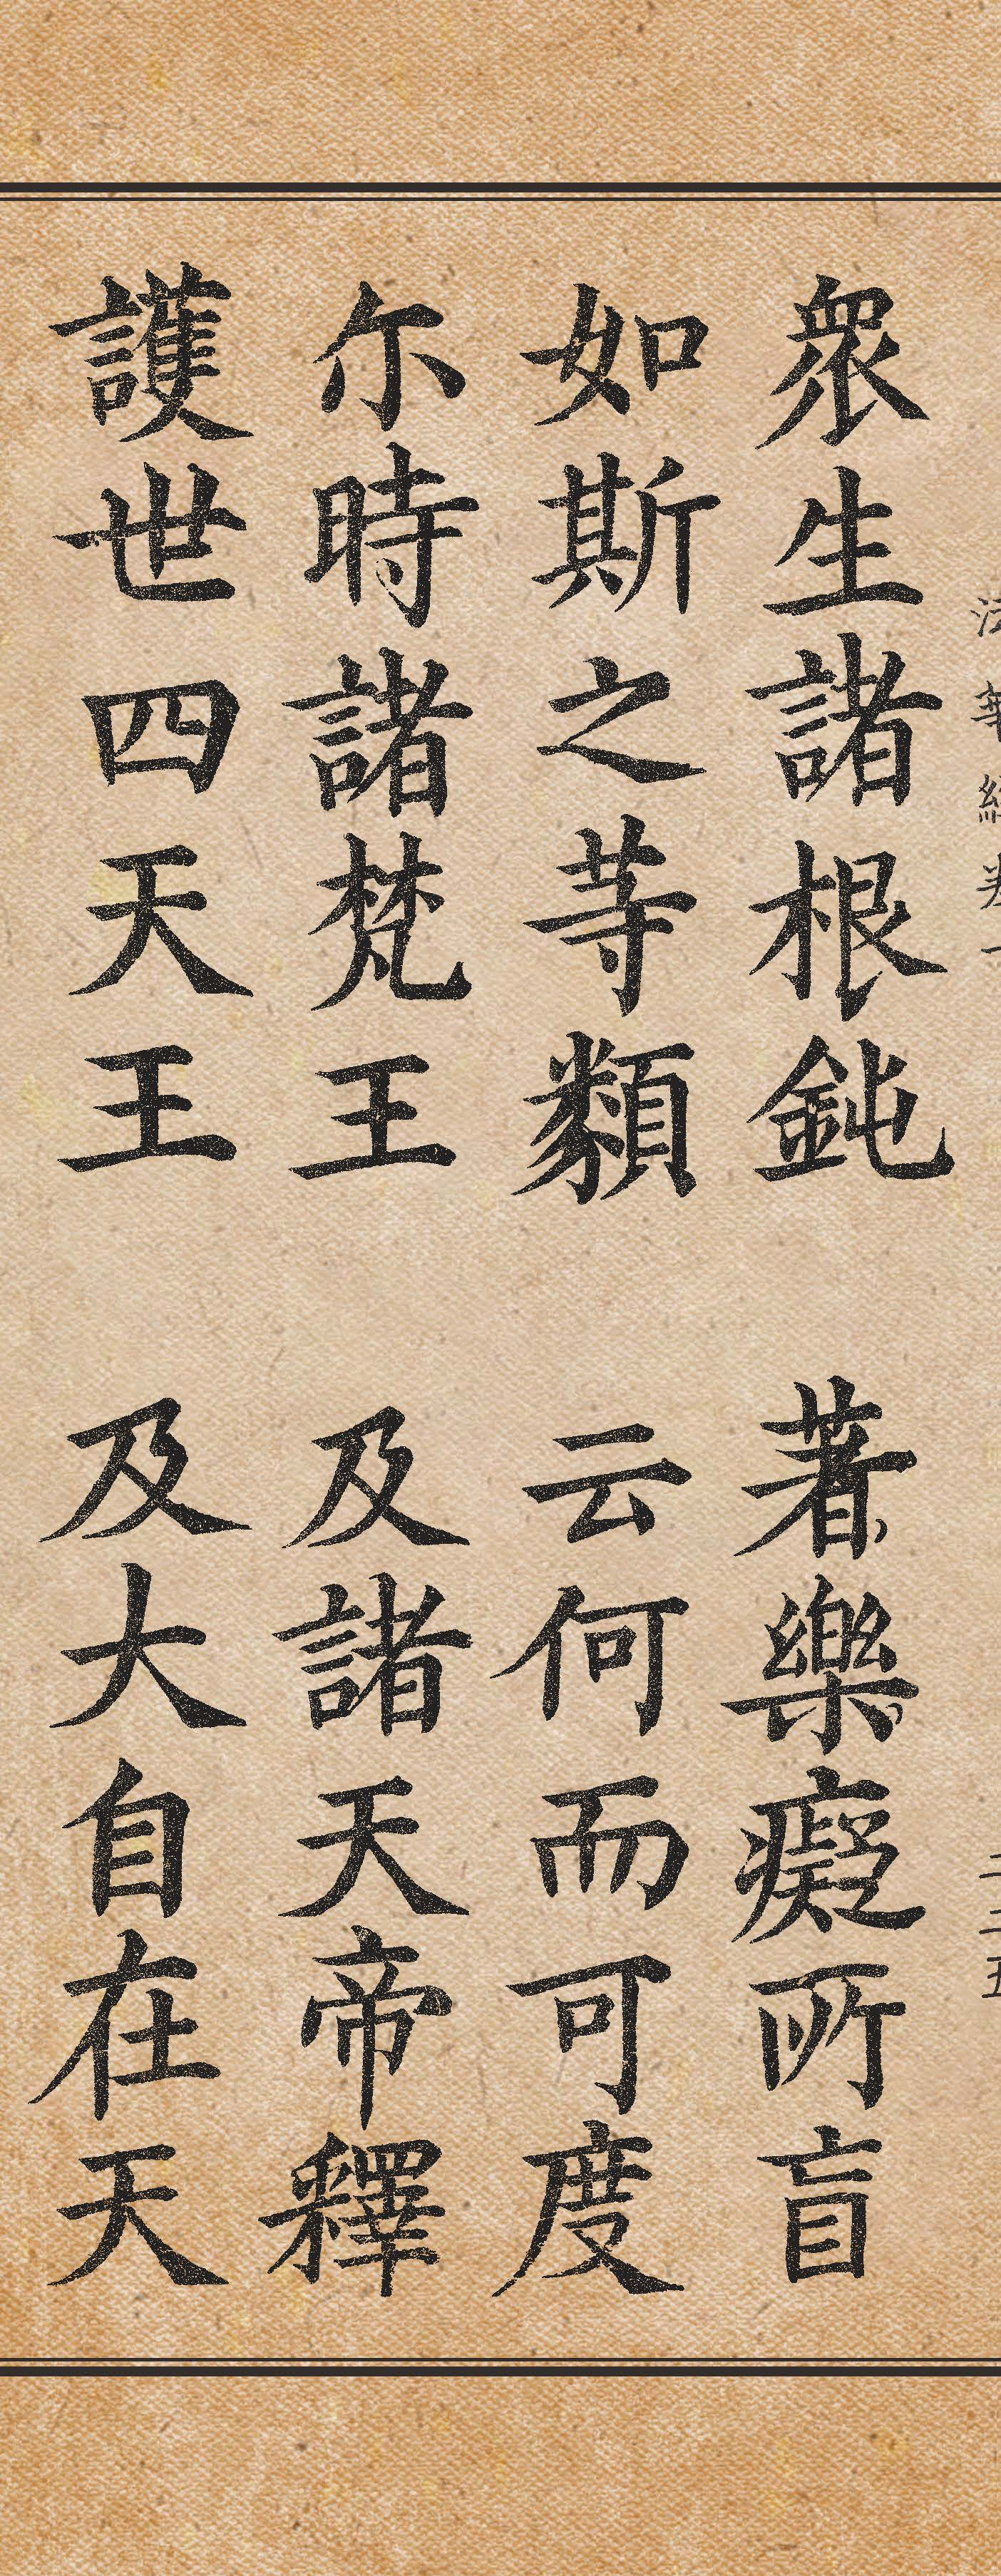 法華經卷一 二二五
眾生諸根鈍 著樂癡所盲
如斯之等類 云何而可度
尒時諸梵王 及諸天帝釋
護世四天王 及大自在天